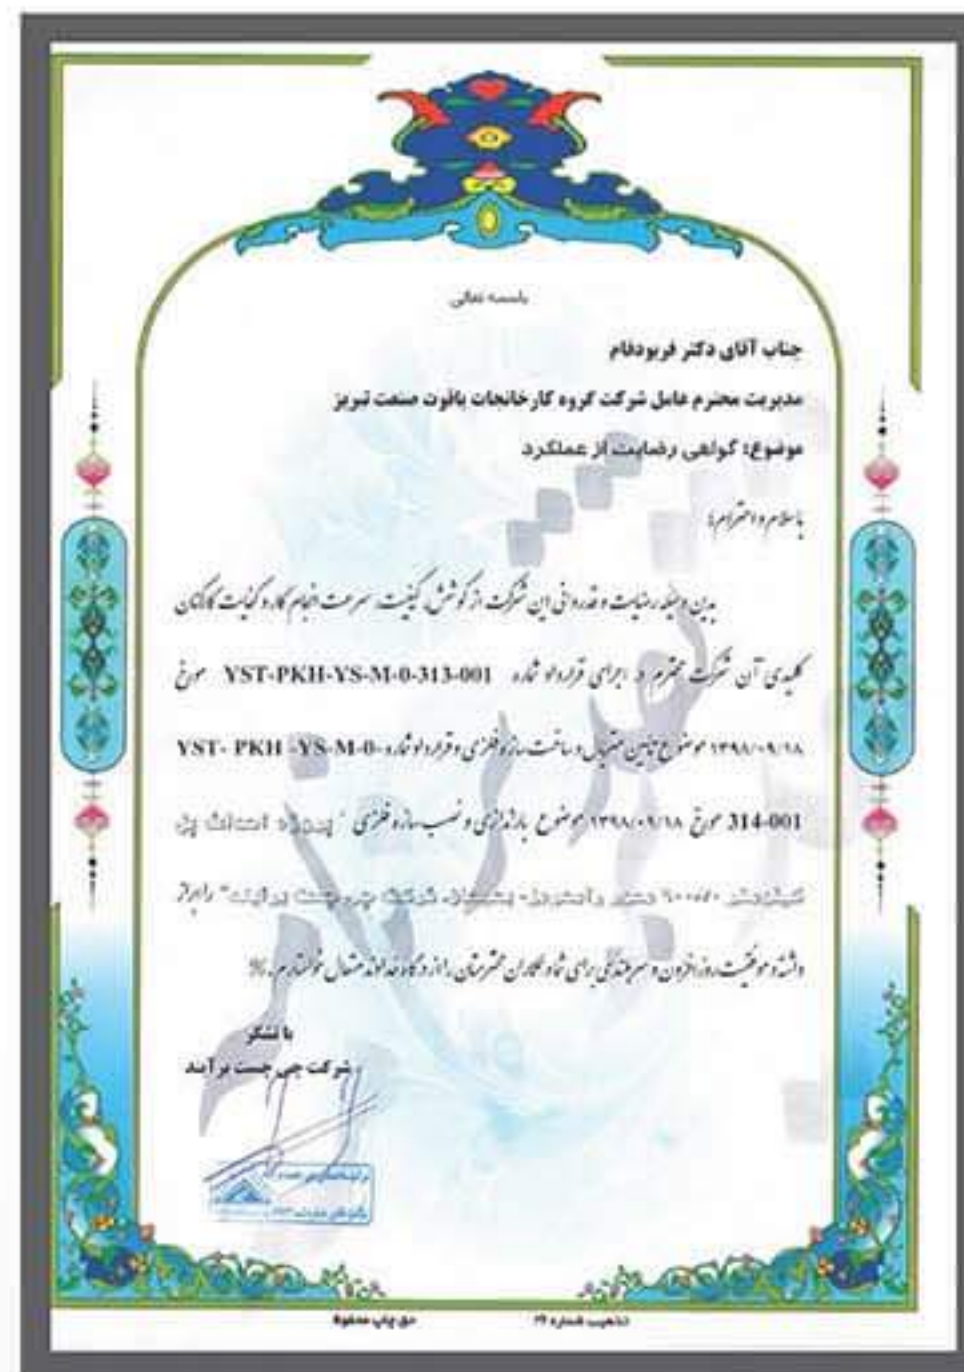 باسمه تعالی
جناب آقای دکتر فربودفام
مدیریت محترم عامل شرکت گروه کارخانجات یاقوت صنعت تبریز
موضوع: گواهی رضایت از عملکرد
با سلام و احترام؛
بدین وسیله رضایت و قدردانی این شرکت از کوشش، کیفیت، سرعت انجام کار و کفایت کارکنان
کلیدی آن شرکت محترم در اجرای قرارداد شماره YST-PKH-YS-M-0-313-001 مورخ
۱۳۹۸/۰۹/۱۸ موضوع تامین متریال و ساخت سازه فلزی و قرارداد شماره YST- PKH -YS-M-0-
314-001 مورخ ۱۳۹۸/۰۹/۱۸ موضوع باراندازی و نصب سازه فلزی "پروژه احداث پل
کیلومتر محور رامهرمز- بهبهان شرکت چی چست برآیند" را ابراز
داشته و موفقیت روز افزون و سربلندی برای شما و همکاران محترمتان را از درگاه خداوند متعال خواستاریم.%
با تشکر
شرکت چی چست برآیند
تذهیب شماره ۲۶
حق چاپ محفوظ